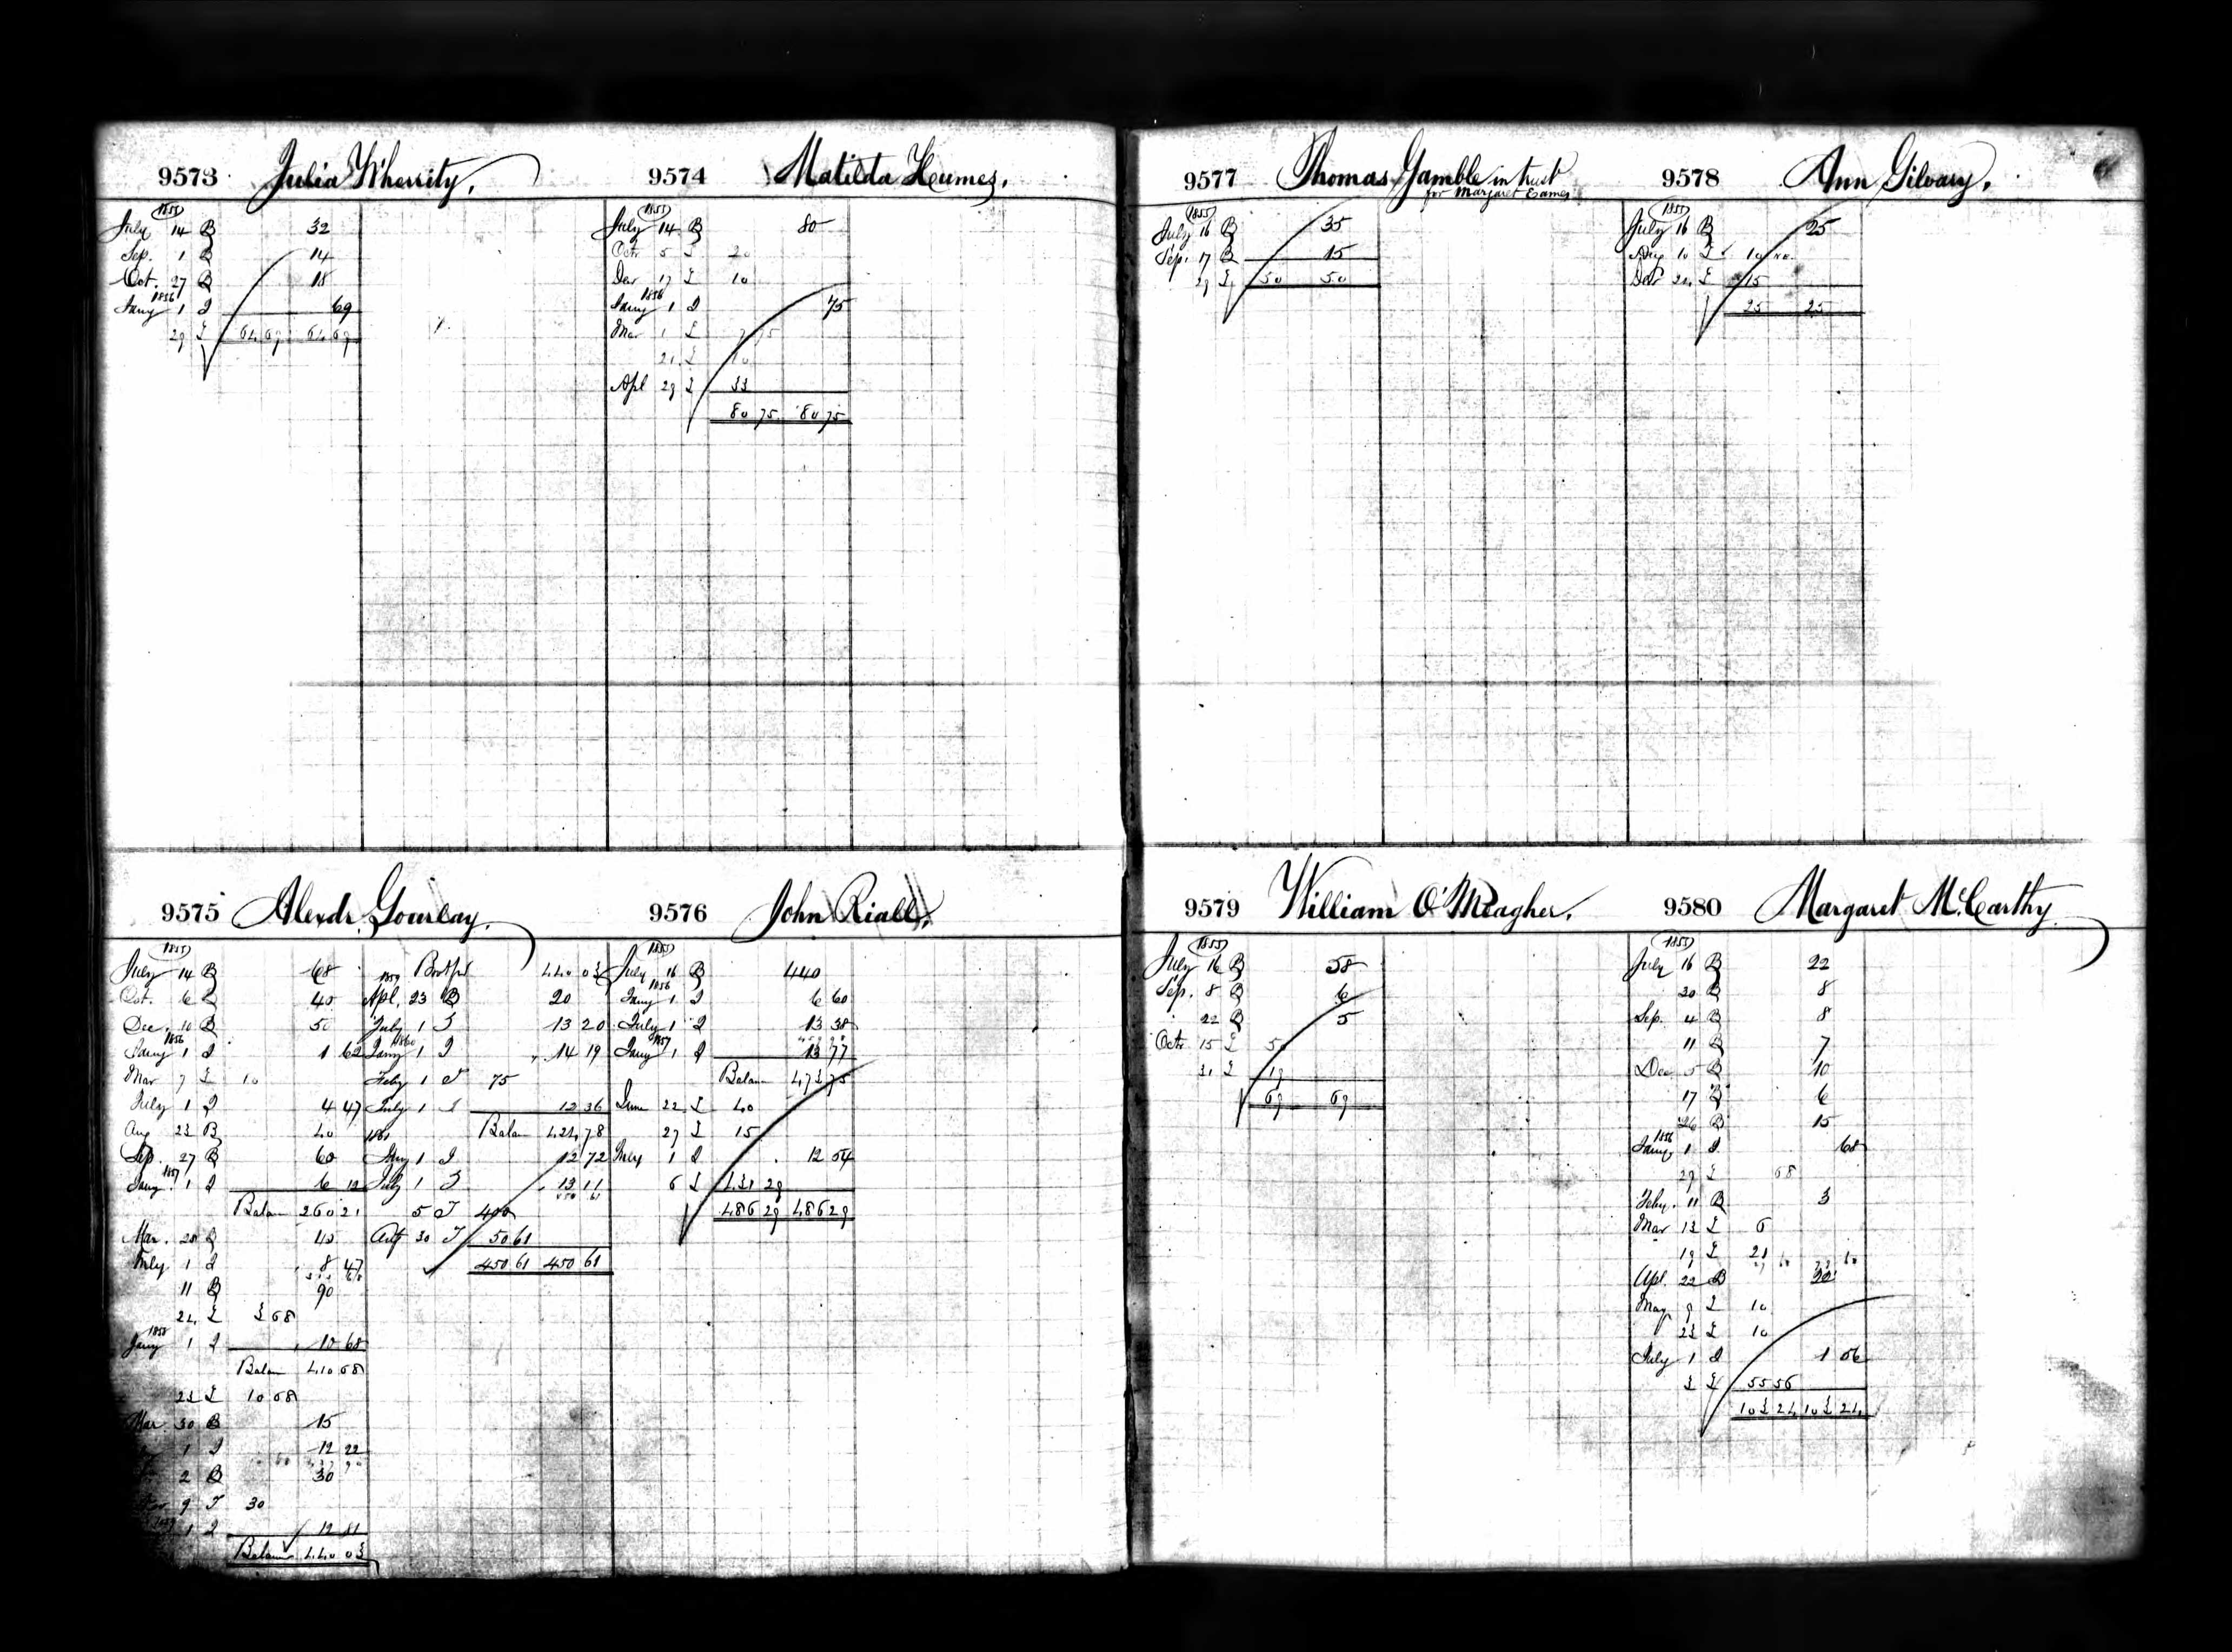 9573 Julia Wherrity,
1855
July 14 B 32
Sep. 1 B 14
Oct. 27 B 18
1856
Jany 1 I 69
29 L 64 69 64 69
9574 Matilda Humes,
1855
July 14 B 80
Octr 5 L 20
Decr 17 L 10
1856
Jany 1 I 75
Mar 1 L 7 75
21 L 10
Apl 29 L 33
80 75 80 75
9575 Alexdr. Gourlay.
1855
July 14 B 68
Oct. 6 B 40
Dec. 10 B 50
1856
Jany 1 I 1 62
Mar 7 L 10
July 1 I 4 47
Aug 23 B 40
Sep. 27 B 60
1857
Jany 1 I 6 12
Balan 260 21
Mar. 28 B 45
July 1 I 8 47
11 B 90
24 L 3 68
1858
Jany 1 I 10 68
Balan 410 68
23 L 10 68
Mar. 30 B 15
1 I 12 22
2 B 30
9 T 30
1859
1 I 12 81
Balance 440 03
Brotfwd 440 03
1859
Apl. 23 B 20
July 1 I 13 20
1860
Jany 1 I 14 19
Feby 1 T 75
July 1 I 12 36
Balan 424 78
1861
Jany 1 I 12 72
July 1 I 13 11
450 61
5 T 400
30 T 50 61
450 61 450 61
9576 John Riall.
1855
July 16 B 440
1856
Jany 1 I 6 60
July 1 I 13 38
1857
Jany 1 I 13 77
Balan 473 75
June 22 L 40
27 L 15
July 1 I 12 54
6 L 431 29
486 29 486 29
9577 Thomas Gamble in trust
for Margaret Eames
1855
July 16 B 35
Sep. 17 B 15
29 L 50 50
9578 Ann Gilvary,
1855
July 16 B 25
Aug 10 L 10
Decr 24 L 15
25 25
9579 William O'Meagher,
1855
July 16 B 58
Sep. 8 B 6
22 B 5
Octr 15 L 50
31 L 19
69 69
9580 Margaret McCarthy
1855
July 16 B 22
30 B 8
Sep. 4 B 8
11 B 7
Dec. 5 B 10
17 B 6
26 B 15
1856
Jany 1 I 68
29 L 68
Feby. 11 B 3
Mar 13 L 6
19 L 21
Apl. 22 B 22
May 9 L 10
23 L 10
July 1 I 1 56
3 L 55 56
103 24 103 24